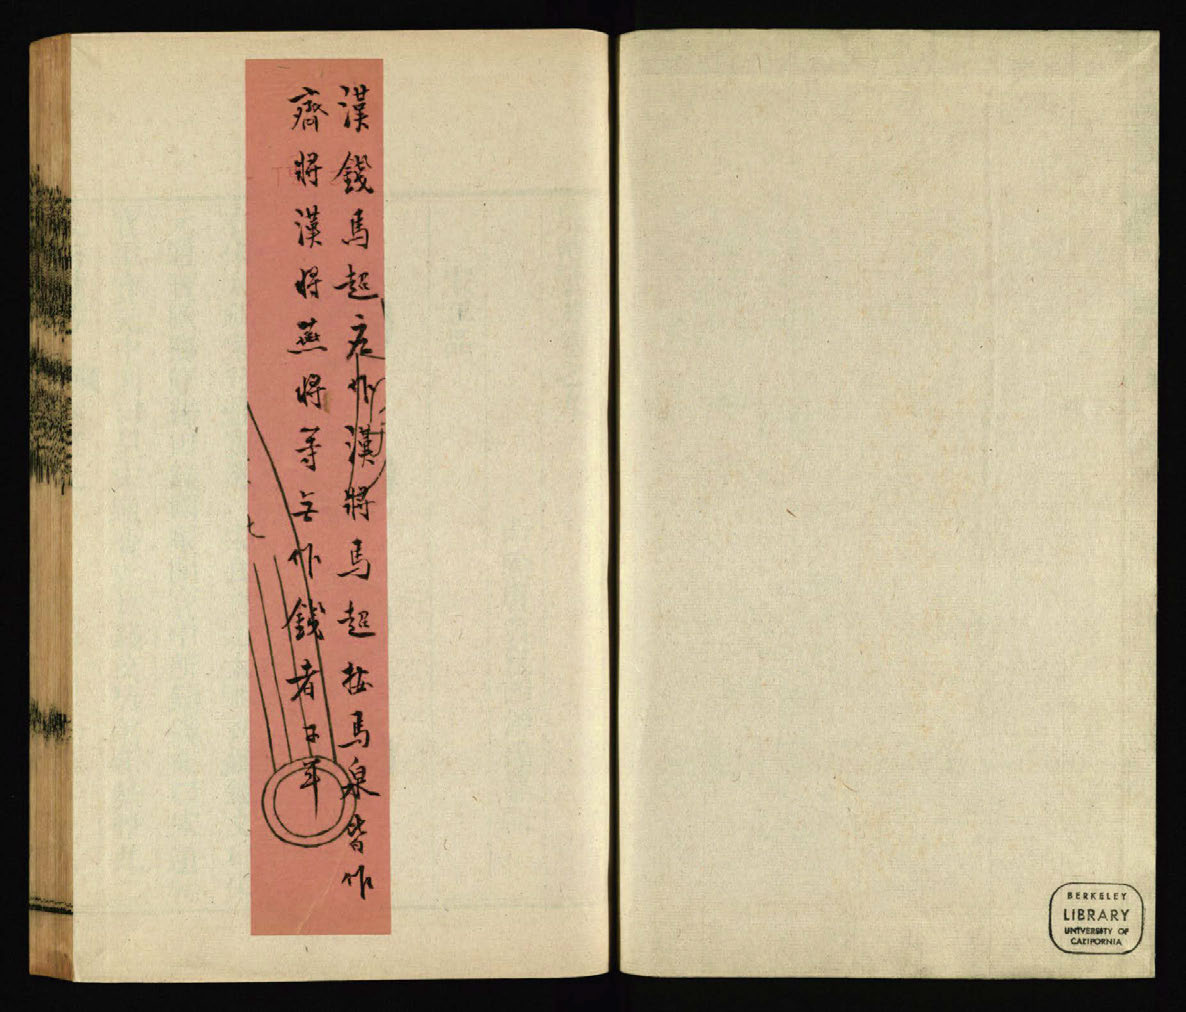 漢錢馬起應作漢將馬超按馬泉皆作
齊將漢將燕將等無作錢者
BERKELEY
LIBRARY
UNIVERSITY OF
CALIFORNIA